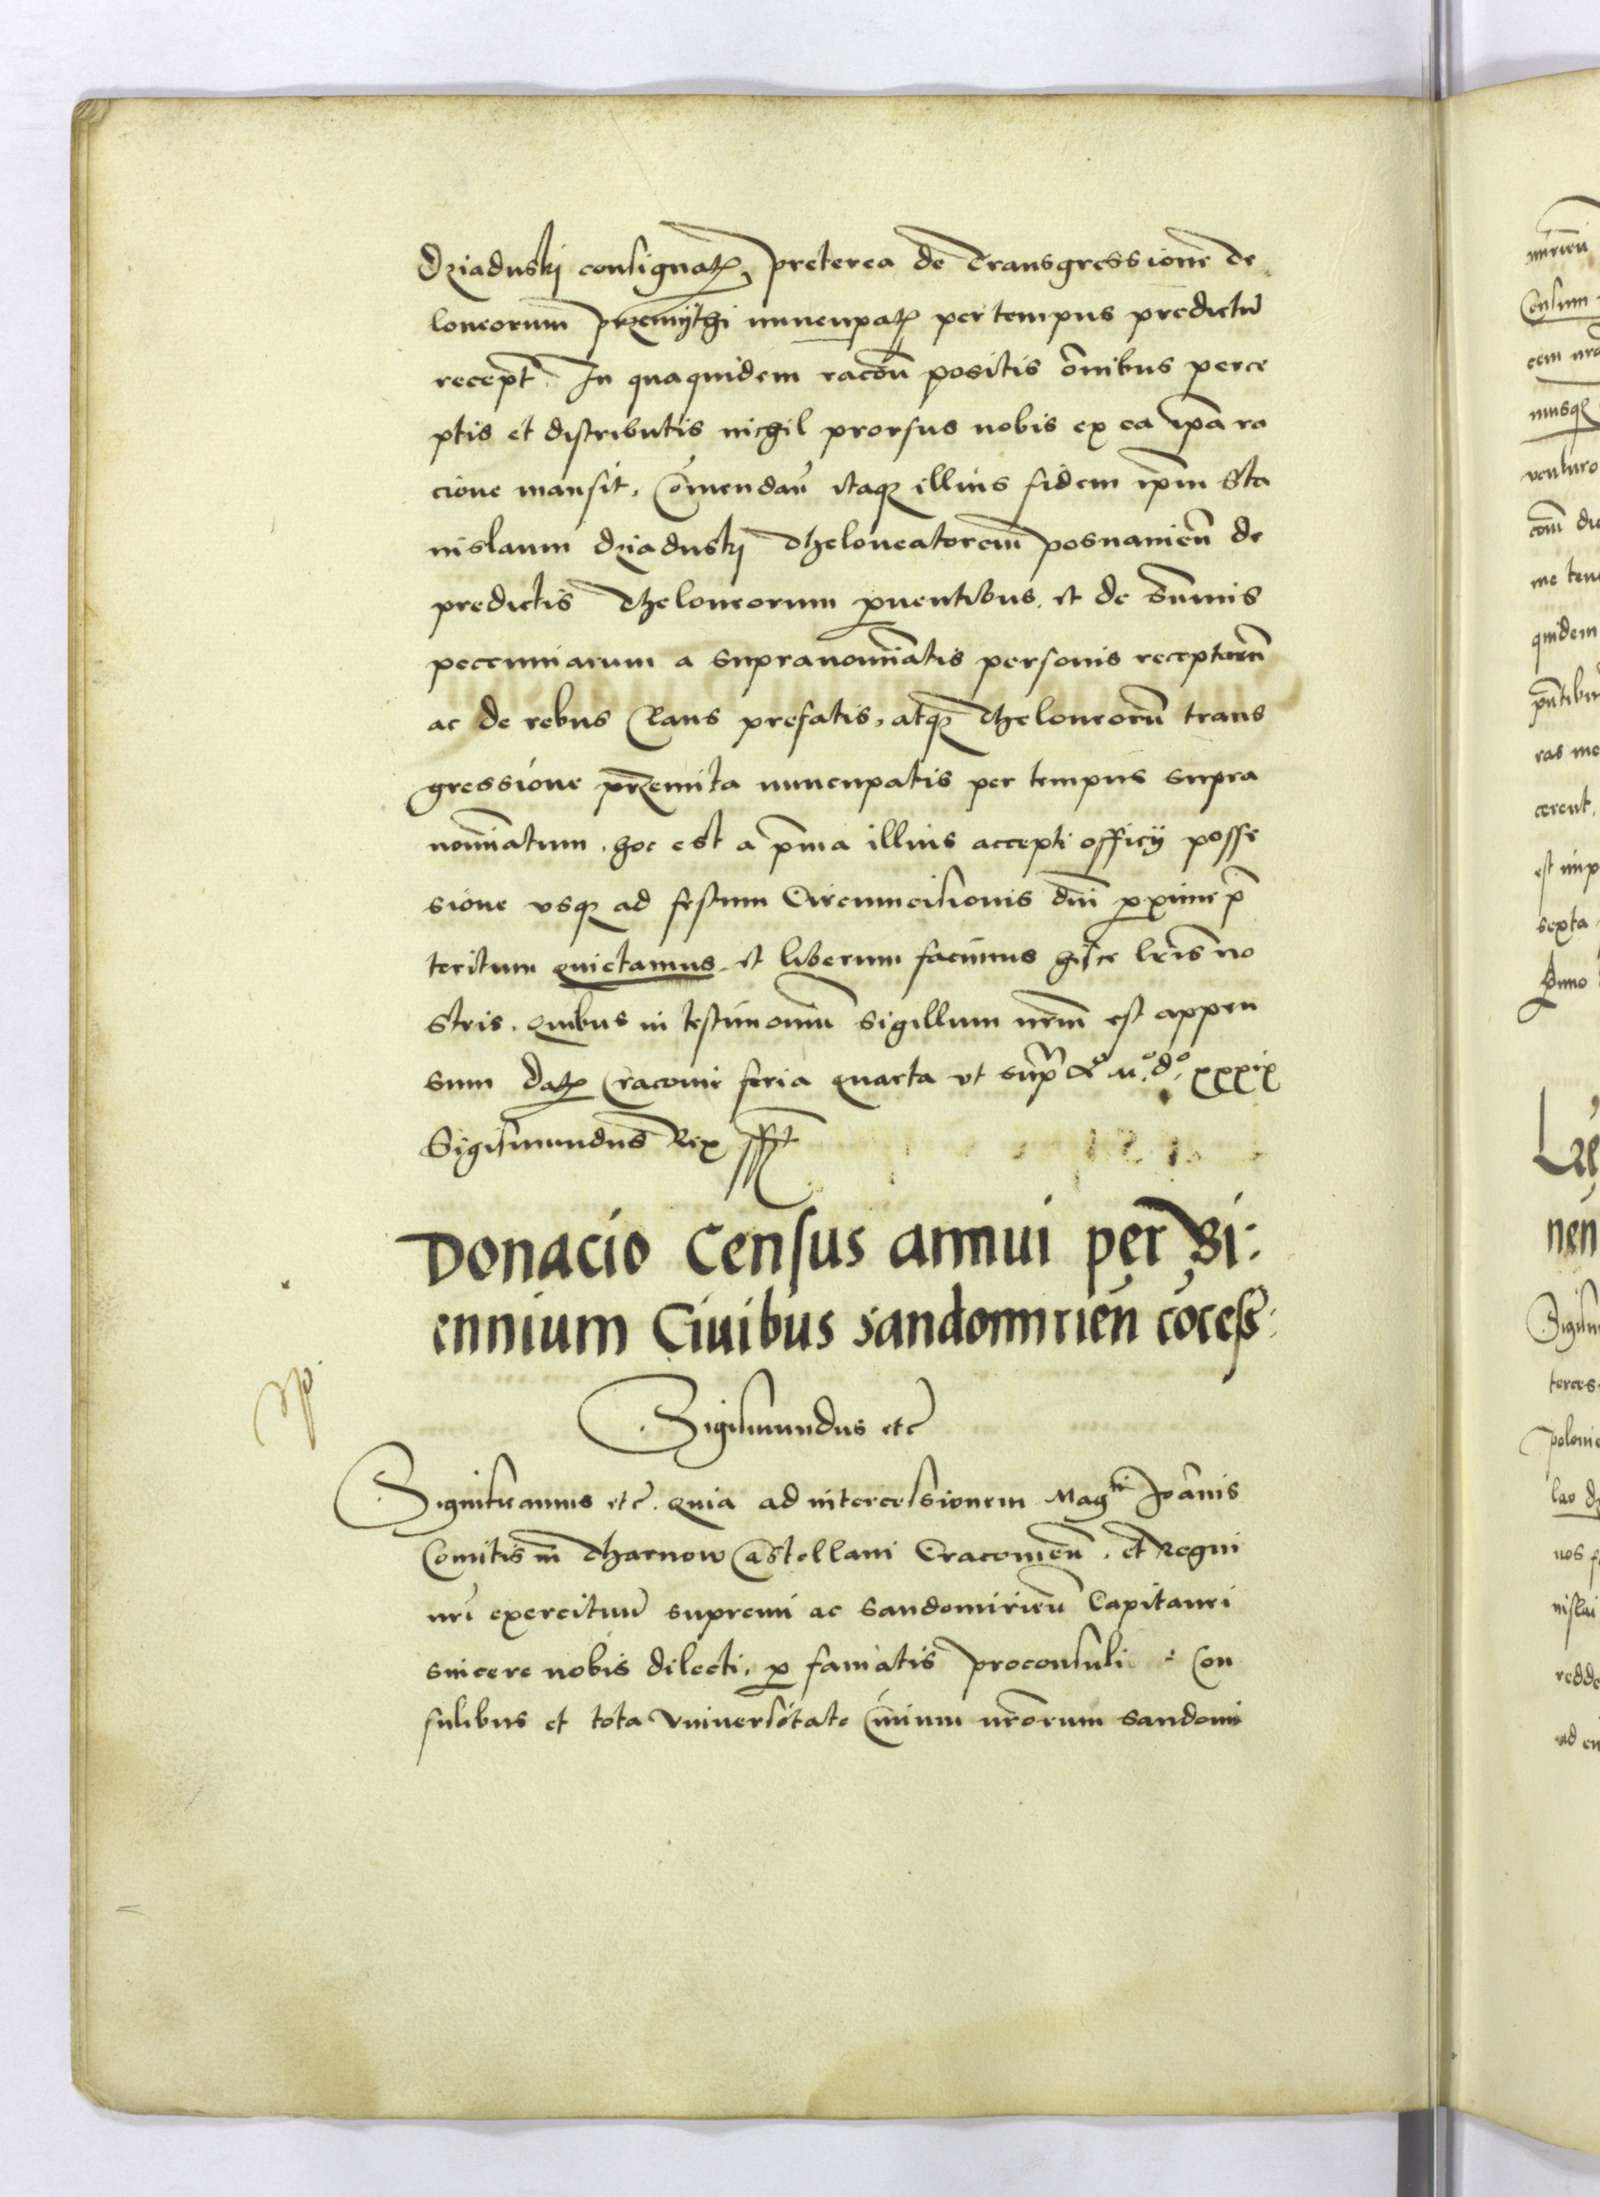 Dziaduskj consignatꝝ, preterea de Transgressione de
loneorum przemijthi nuncupatꝝ per tempus predictū
recept. In quaquidem racōn positis ōnibus perce
ptis et distributis nichil prorsus nobis ex ea ip̄a ra
cione mansit, Cōmendan̄ itaqꝫ illius fidem ip̄m Sta
nislaum Dziaduskj Theloneatorem posnanien̄ de
predictis Theloneorum ꝓuentibus, et de Sūmis
pecuniarum a supranomīatis personis receptarū
ac de rebus prefatis, atqꝫ Theloneorū trans
gressione przemita nuncupatis per tempus supra
nomīatum, hoc est a p̄ma illius accepti officij posse
sione vsqꝫ ad festum Circumcisionis dn̄i ꝓxime p̄
teritum quietamus et liberum facimus hisce lr̄is no
stris, Quibus in testimoniū sigillum nr̄m est appen
sum datꝝ Cracouie feria quarta vt sup̄ Aº Mº.dº. xxxix
Sigismundus Rex sst
Donacio Census annui per Bi:
ennium Ciuibus Sandomirien̄ cōcess:
Sigismundus etc̄
Significamus etc̄. Quia ad intercessionem Magci Joānis
Comitis in Tharnow Castellani Cracouien̄. et Regni
nr̄i exercituū supremi ac Sandomirien̄ Capitanei
sincere nobis dilecti, ꝓ famatis proconsuli : Con
sulibus et tota Vniuersitate Ciuium nr̄orum Sandomi